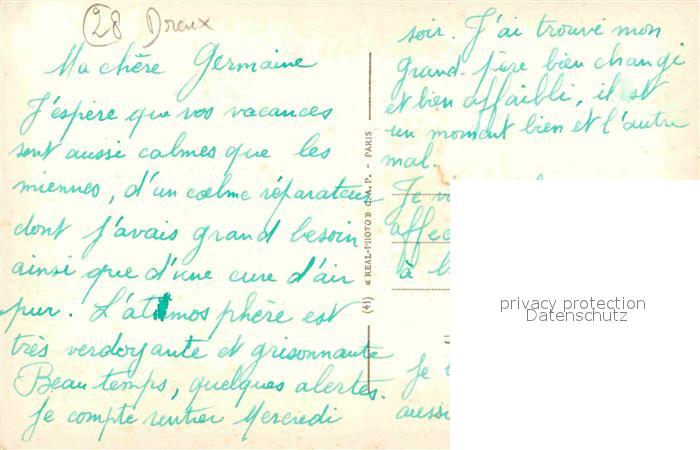 28 Dreux
Ma chère Germaine
J'espère que vos vacances
sont aussi calmes que les
miennes, d'un calme réparateur
dont j'avais grand besoin
ainsi que d'une cure d'air
pur. L'atmosphère est
très verdoyante et grisonnante
Beau temps, quelques alertes.
Je compte rentrer Mercredi
soir. J'ai trouvé mon
grand-père bien changé
et bien affaibli, il est
un moment bien et l'autre
mal.
Je
affec
à
Je
aussi
(41) « REAL-PHOTO » C.A.P. - PARIS
privacy protection
Datenschutz